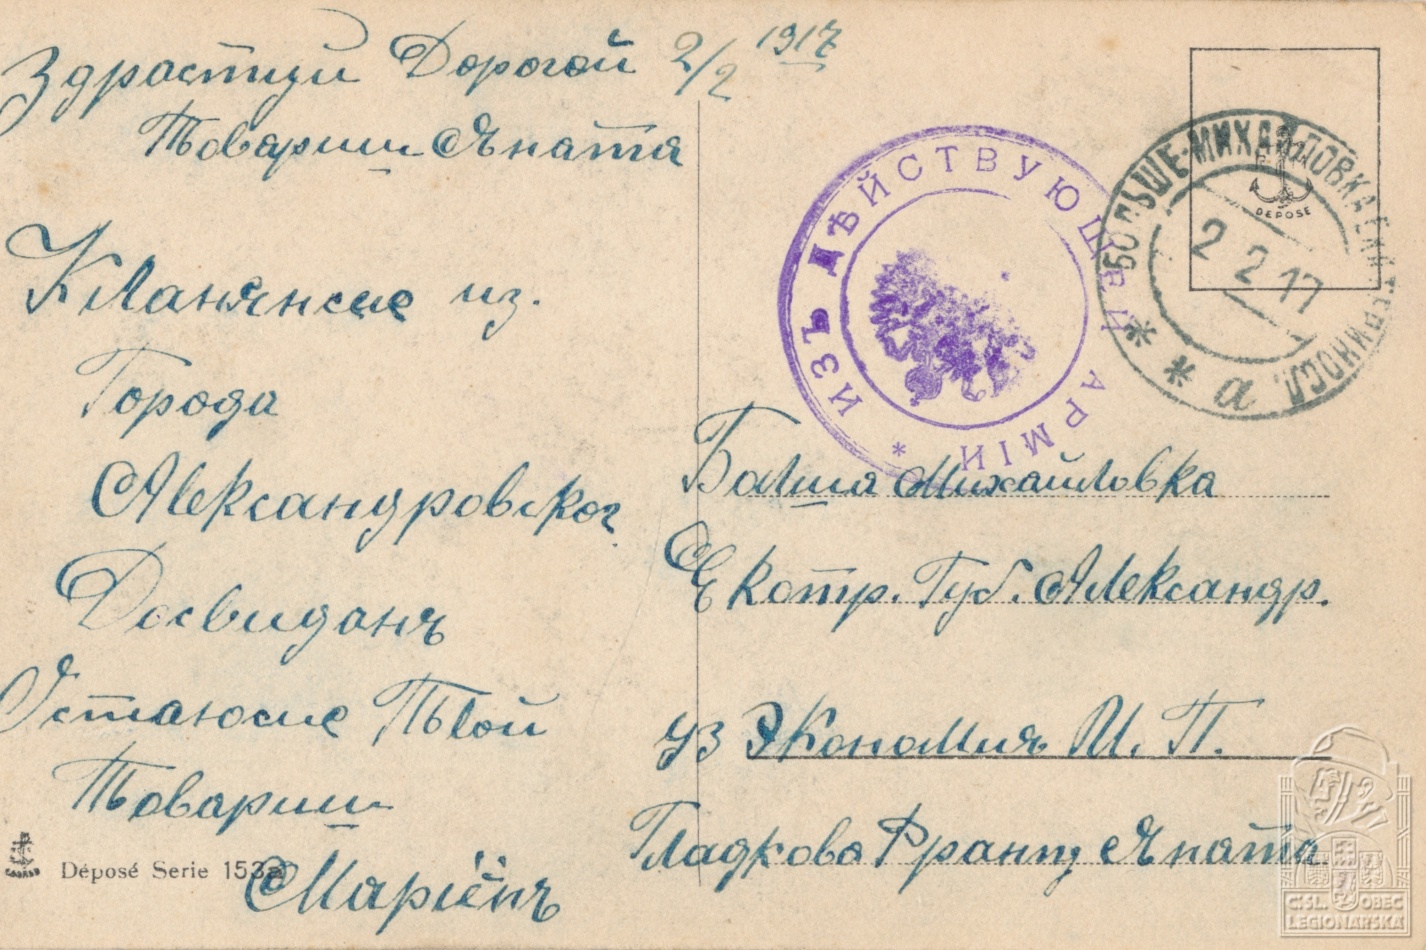 Здрастуй Дорогой 2/2 1917
Товариш Яната
Кланяюсе из.
Города
Александровског.
Досвидань
Остаюсие Твой
Товариш
Марiёнь
Déposé Serie 153
ИЗЪ ДѢЙСТВУЮЩЕЙ АРМIИ *
БОЛЬШЕ-МИХАЙЛОВКА ЕКАТЕРИНОСЛ.
2 2 17
* * а
DEPOSE
Балшя Михайловка
Екотр. Губ. Александр.
уз Экономия И. П.
Гладкова Франц Яната
C.SL. OBEC
LEGIONÁŘSKÁ